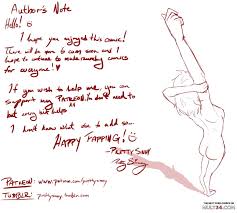 Author's Note
Hello! :)
I hope you enjoyed this comic!
There will be more to come soon and I
hope to continue to make raunchy comics
for everyone! ♥
If you wish to help me, you can
support my PATREON. You don't need to
but every bit helps
I don't know what else to add so...
HAPPY FAPPING! :)
PATREON: www.patreon.com/
TUMBLR: .tumblr.com
MULT34.COM